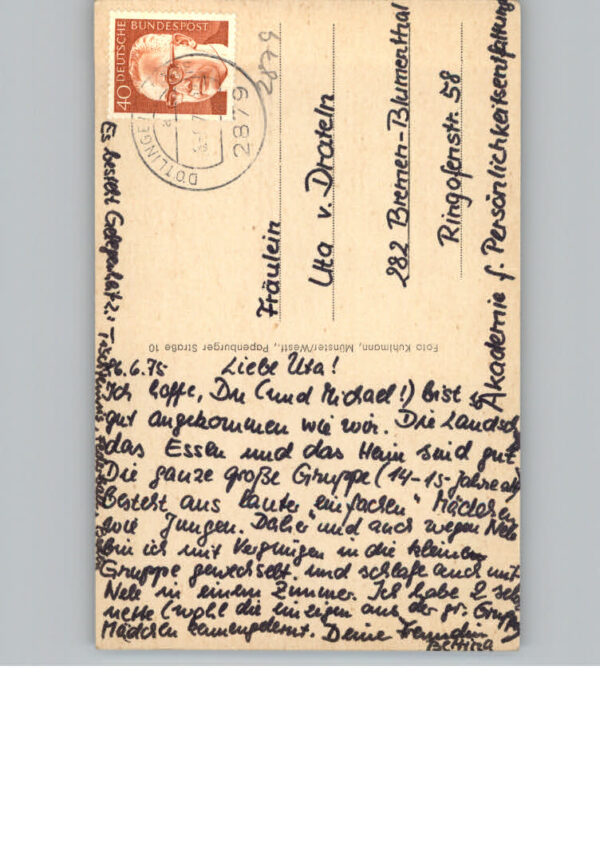 DEUTSCHE BUNDESPOST
40
2879
DÖTLINGEN
2879
Fräulein
Uta v. Drateln
282 Bremen-Blumenthal
Ringofenstr. 58
Akademie f. Persönlichkeitsentfaltung
Foto Kuhlmann, Münster/Westf., Papenburger Straße 10
Es besteht Gelegenheit z.:
26.6.75 Liebe Uta!
Ich hoffe, Du (und Michael!) bist so
gut angekommen wie wir. Die Landsch.
das Essen und das Heim sind gut.
Die ganze große Gruppe (14-15-Jahre alt)
besteht aus lauter "einfachen" Mädchen
wie Jungen. Daher und auch wegen Nele
bin ich mit Vergnügen in die kleinere
Gruppe gewechselt und schlafe auch mit
Nele in einem Zimmer. Ich habe 2 sehr
nette (wohl die einzigen aus der gr. Gruppe)
Mädchen kennengelernt. Deine Freundin
Bettina